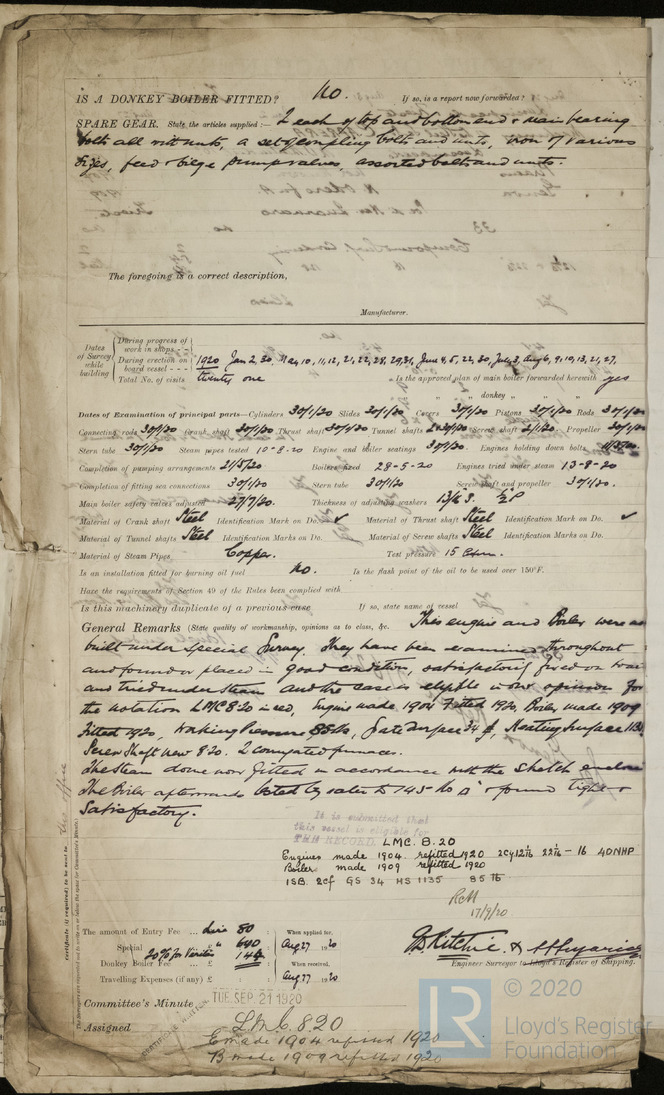 IS A DONKEY BOILER FITTED? No. If so, is a report now forwarded?
SPARE GEAR. State the articles supplied:— 2 each of top and bottom end & main bearing
bolts all with nuts, a set of coupling bolts and nuts, iron of various
sizes, feed & bilge pump valves, assorted bolts and nuts.
The foregoing is a correct description,
Manufacturer.
Dates of Survey while building
During progress of work in shops - -
During erection on board vessel - - - 1920 Jan 2, 30, May 10, 11, 12, 21, 22, 28, 29, 31, June 4, 5, 22, 30, July 3, Aug 6, 9, 10, 13, 21, 27,
Total No. of visits twenty one Is the approved plan of main boiler forwarded herewith yes
" " " donkey " " "
Dates of Examination of principal parts—Cylinders 30/1/20 Slides 30/1/20 Covers 30/1/20 Pistons 30/1/20 Rods 30/1/20
Connecting rods 30/1/20 Crank shaft 30/1/20 Thrust shaft 30/1/20 Tunnel shafts Screw shaft 2/1/20 Propeller 30/1/20
Stern tube 30/1/20 Steam pipes tested 10-8-20 Engine and boiler seatings 30/1/20 Engines holding down bolts
Completion of pumping arrangements 21/5/20 Boilers fixed 28-5-20 Engines tried under steam 13-8-20
Completion of fitting sea connections 30/1/20 Stern tube 30/1/20 Screw shaft and propeller 30/1/20.
Main boiler safety valves adjusted 27/7/20. Thickness of adjusting washers
Material of Crank shaft Steel Identification Mark on Do. ✓ Material of Thrust shaft Steel Identification Mark on Do. ✓
Material of Tunnel shafts Steel Identification Marks on Do. Material of Screw shafts Steel Identification Marks on Do.
Material of Steam Pipes Copper. Test pressure 15
Is an installation fitted for burning oil fuel No. Is the flash point of the oil to be used over 150°F.
Have the requirements of Section 49 of the Rules been complied with
Is this machinery duplicate of a previous case If so, state name of vessel
General Remarks (State quality of workmanship, opinions as to class, &c. This engine and Boiler were
built under special Survey. They have been examined throughout
and found or placed in good condition, satisfactorily fixed on board
and tried under steam and the case is eligible in our opinion for
the notation LMC 8.20 in red, Engine made 1904 Fitted 1920, Boiler made 1909
Fitted 1920, Working Pressure 85 lbs, Grate Surface 34, Heating Surface
Screw Shaft new 8.20. 2 corrugated furnaces.
The Steam dome was fitted in accordance with the sketch
The Boiler afterwards tested by water to 145 lbs & found tight &
Satisfactory.
It is submitted that
this vessel is eligible for
THE RECORD. LMC. 8.20
Engines made 1904. refitted 1920 2Cy. 12 22 - 16 40NHP
Boiler made 1909 refitted 1920
1SB. 2cf GS 34 HS 1135 85 lb
17/9/20
The amount of Entry Fee ... Lire 80 When applied for,
Special " 640 Aug 27 1920
20% for
Donkey Boiler Fee ... When received,
Travelling Expenses (if any) £ Aug 27 1920
G Ritchie &
Engineer Surveyor to Lloyd's Register of Shipping.
Committee's Minute TUE. SEP. 21 1920
Assigned L.M.C. 8.20
E made 1904 refitted 1920
B made 1909 refitted 1920
LR
© 2020
Lloyd's Register
Foundation